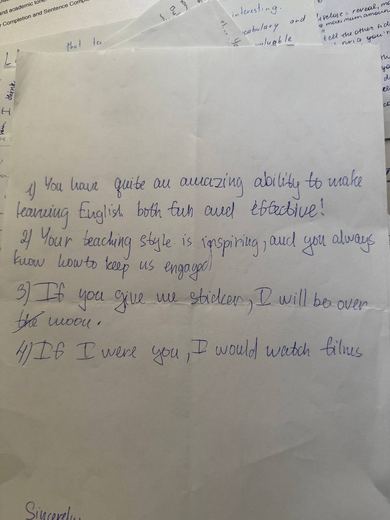 and academic tone
Completion and Sentence Comp
interesting.
vocabulary and
valuable
reveal, m
maximum amoun
tell the other
that
1) You have quite an amazing ability to make
learning English both fun and effective!
2) Your teaching style is inspiring, and you always
know how to keep us engaged
3) If you give me sticker, I will be over
the moon.
4) If I were you, I would watch films
Sincerely